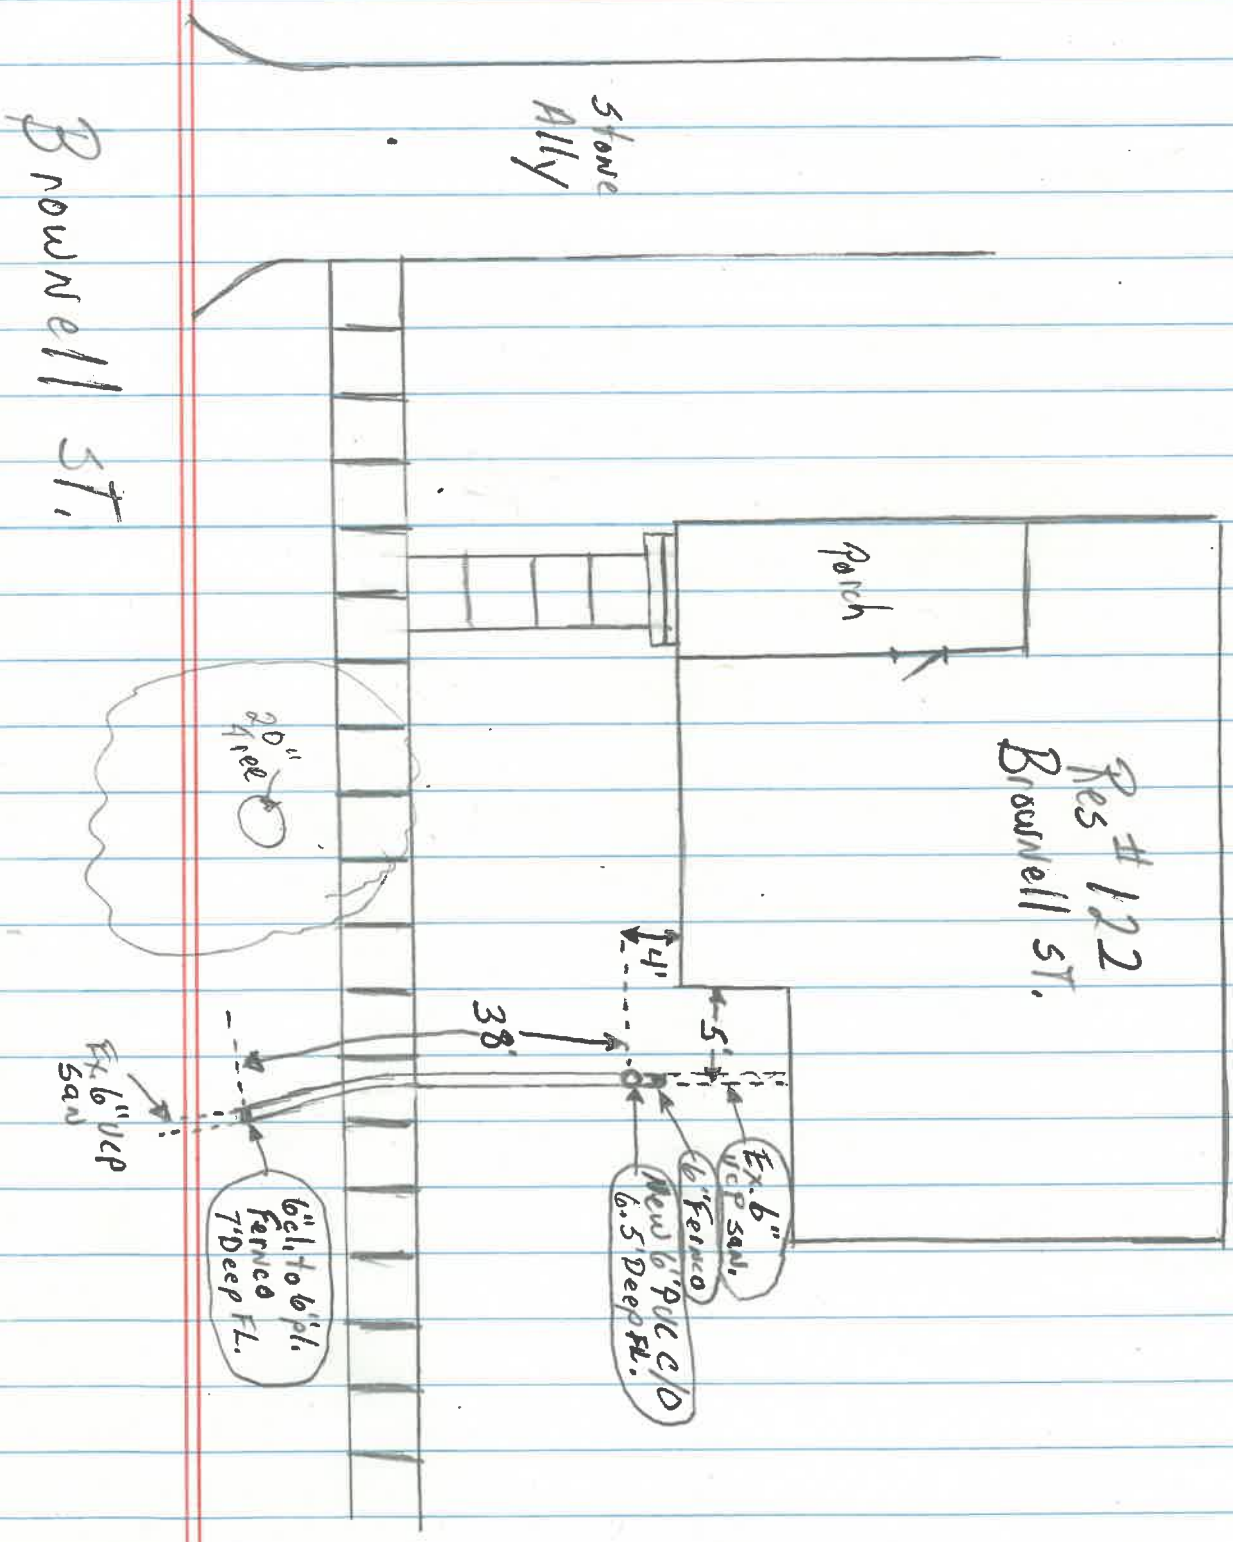 Stone
Ally
Brownell ST.
Porch
Res # 122
Brownell ST.
20"
Tree
4'
5'
38'
Ex. 6"
VCP San.
6" Fernco
New 6" PVC C/O
6.5' Deep FL.
6" cl. to 6" pl.
Fernco
7' Deep FL.
Ex. 6" VCP
San